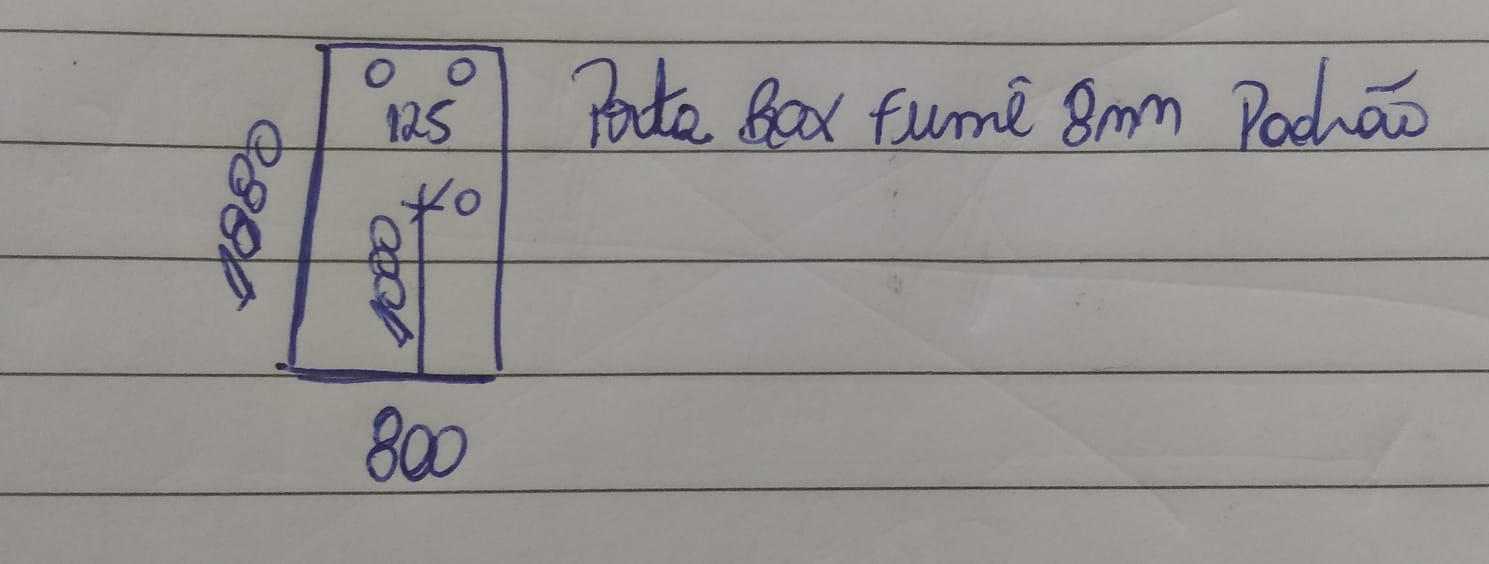 Porta Box fumê 8mm Padrão
125
1880
1000
800